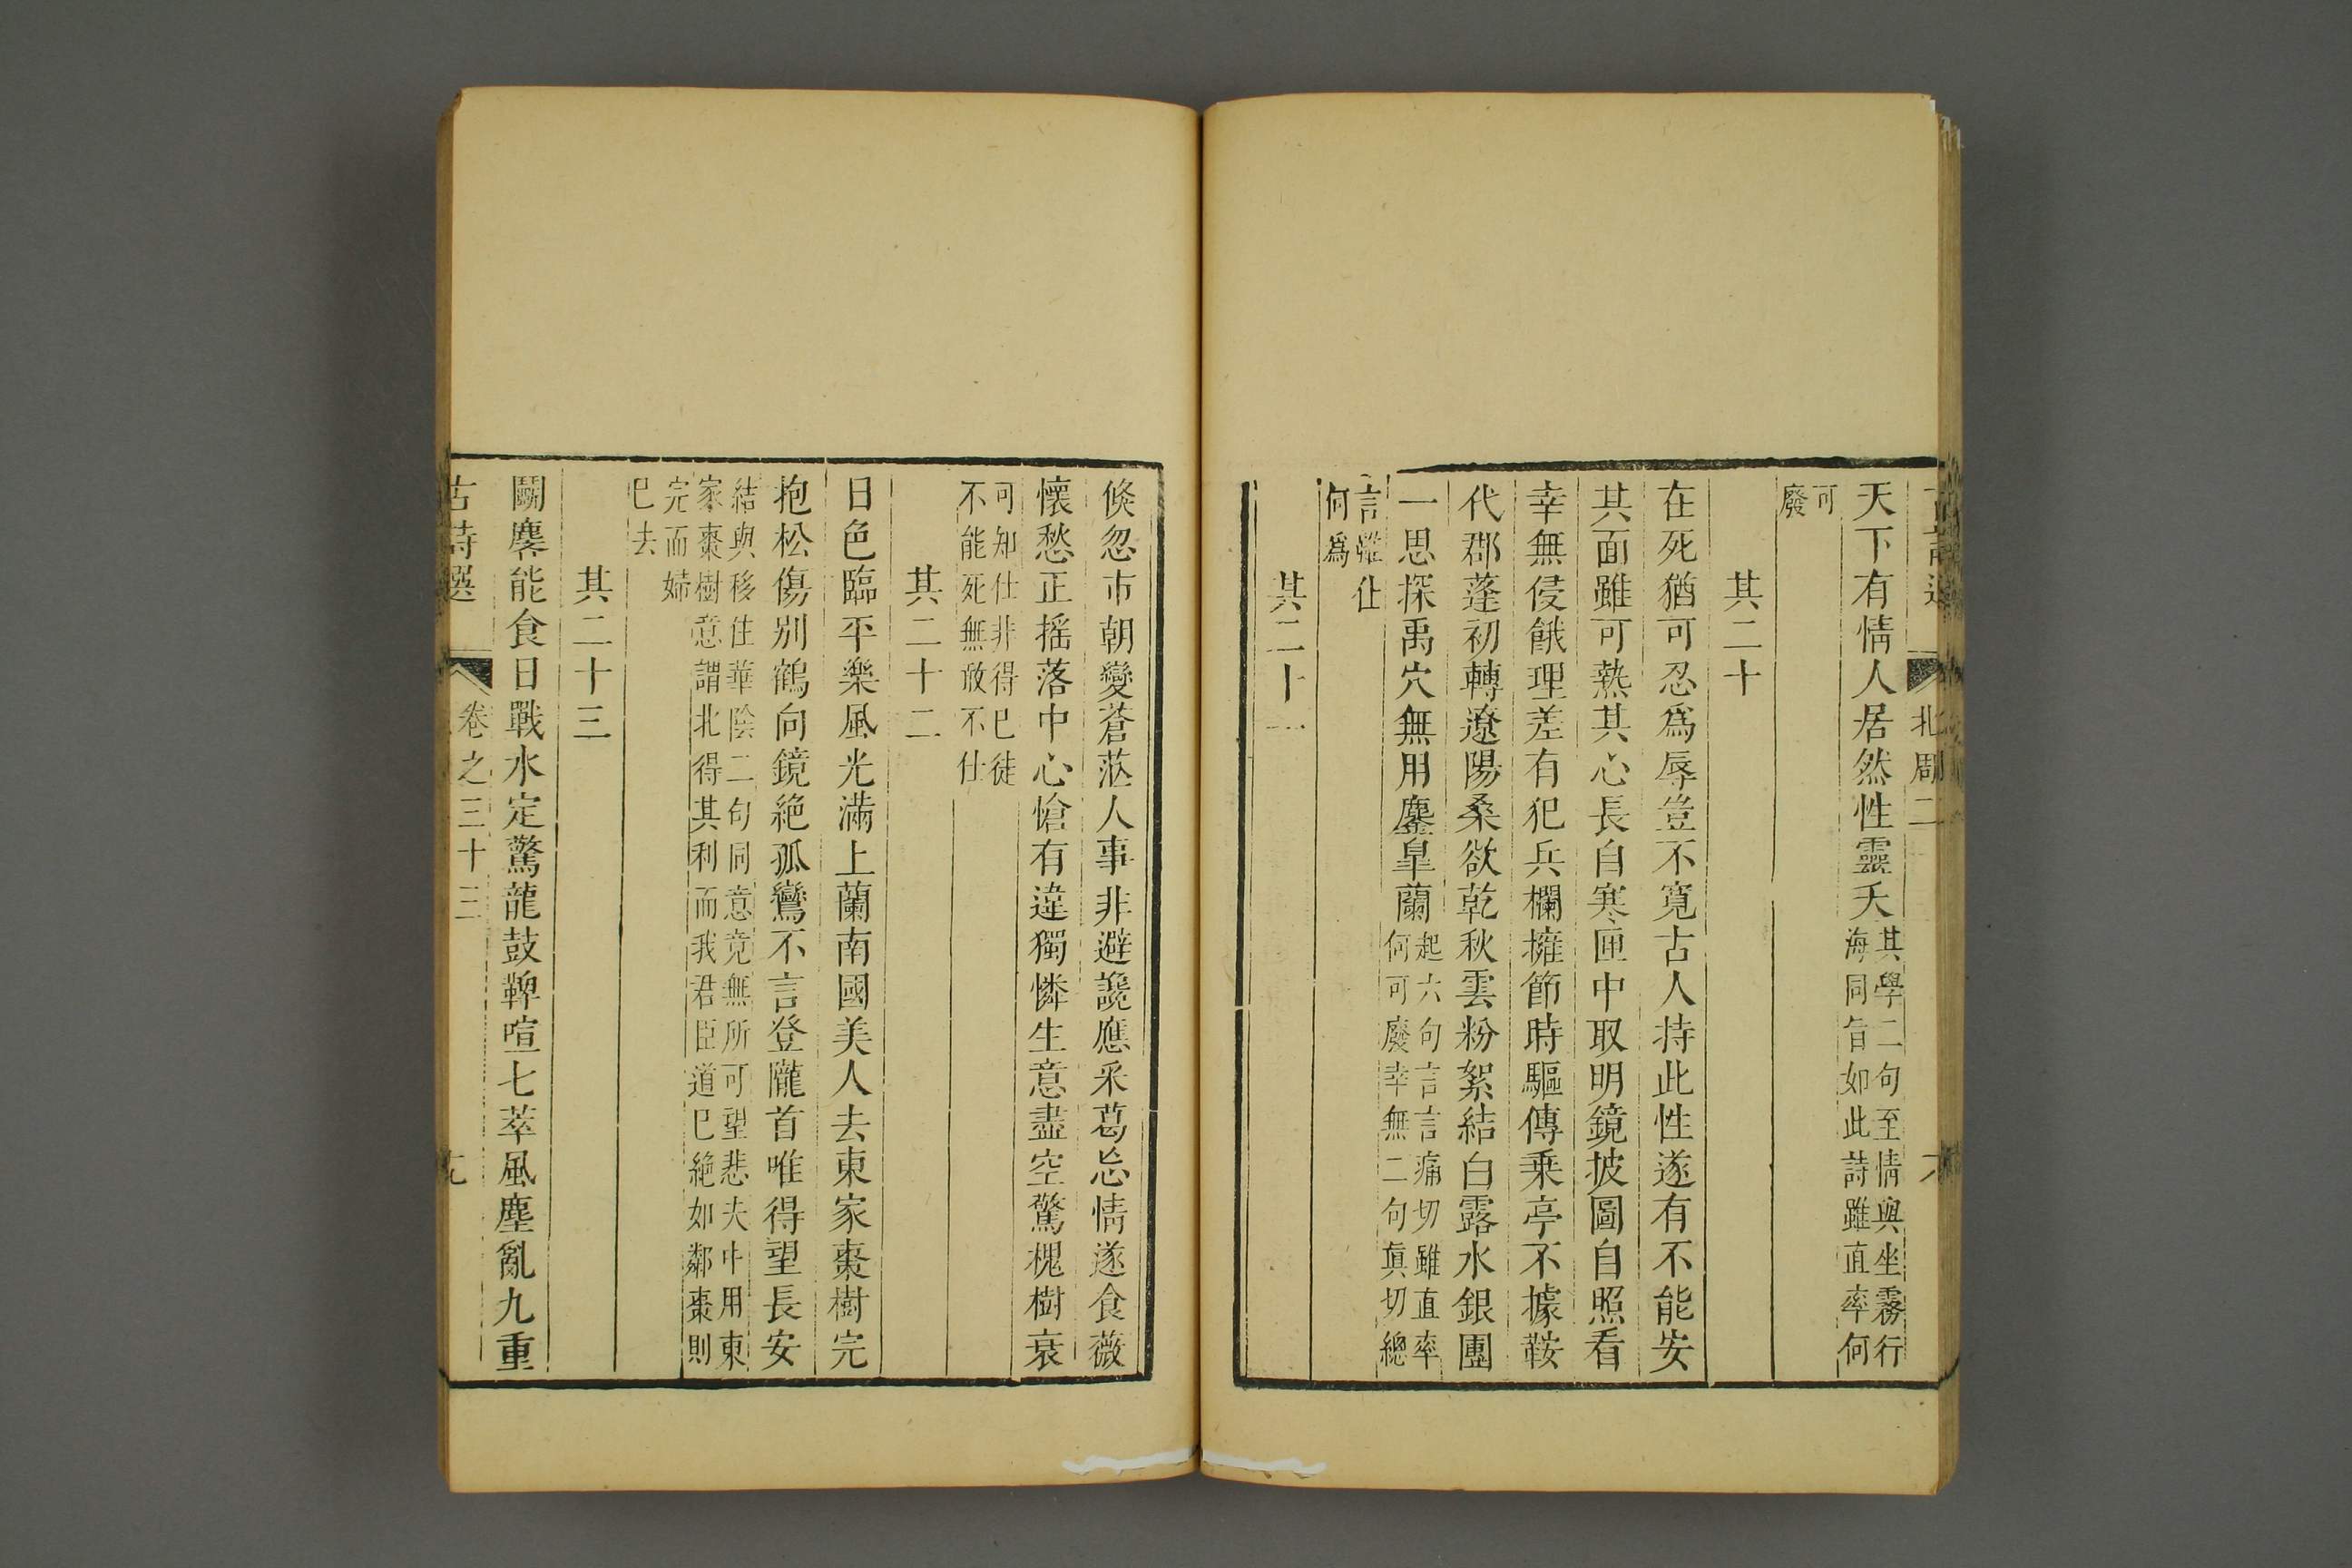 北周二
天下有情人居然性靈夭其學二句至情與坐霧行
海同旨如此詩雖直率何
可
廢
其二十
在死猶可忍爲辱豈不寛古人持此性遂有不能安
其面雖可熱其心長自寒匣中取明鏡披圖自照看
幸無侵餓理差有犯兵欄擁節時驅傳乗亭不據鞍
代郡蓬初轉遼陽桑欲乾秋雲粉絮結白露水銀團
一思探禹穴無用鏖皐蘭起六句言言痛切雖直率
何可廢幸無二句眞切總
言雖仕
何爲
其二十一
倐忽市朝變蒼茫人事非避讒應采葛忘情遂食薇
懷愁正摇落中心愴有違獨憐生意盡空驚槐樹衰
可知仕非得已徒
不能死無敢不仕
其二十二
日色臨平樂風光滿上蘭南國美人去東家棗樹完
抱松傷别鶴向鏡絶孤鸞不言登隴首唯得望長安
結與移住華陰二句同意竟無所可望悲夫中用東
家棗樹意謂北得其利而我君臣道已絶如鄰棗則
完而婦
已去
其二十三
鬬麐能食日戰水定驚龍鼓鞞喧七萃風塵亂九重
古詩選 卷之三十三